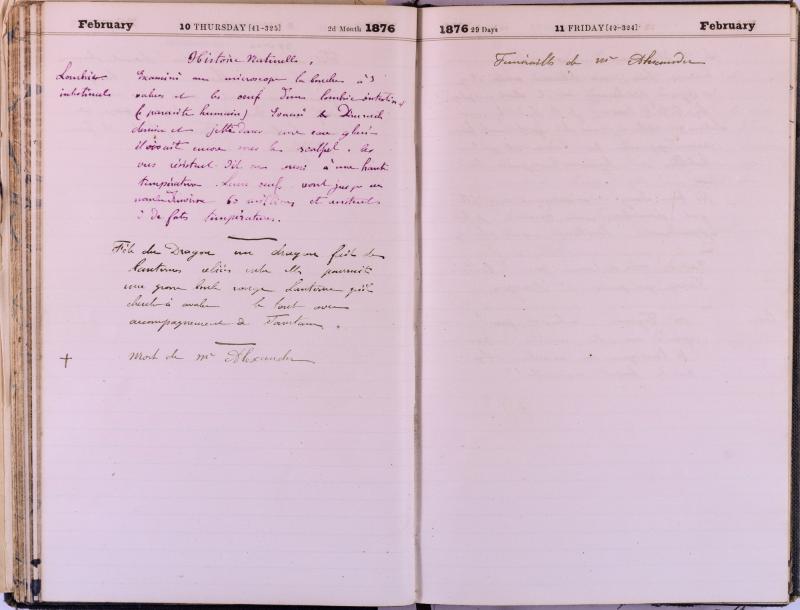 February 10 THURSDAY [41-325] 2d Month 1876
Histoire Naturelle.
Lombric
intestinal
Examiné au microscope la bouche à 3
valves et les oeuf d'un lombric intestin
(parasite humain)
dernier et jetté dans une eau
encore sous le scalpel. les
résistent à une haute
température. Leurs oeufs vont jusqu'
60 millions et
à de températures.
Fête du Dragon un dragon fait de
lanternes reliées entre elles poursuit
une grosse boule rouge lanterne qu'il
cherche à avaler le tout avec
accompagnement de Tamtam.
+ Mort de Mr Alexander
1876 29 Days 11 FRIDAY [42-324] February
Funérailles de Mr Alexander